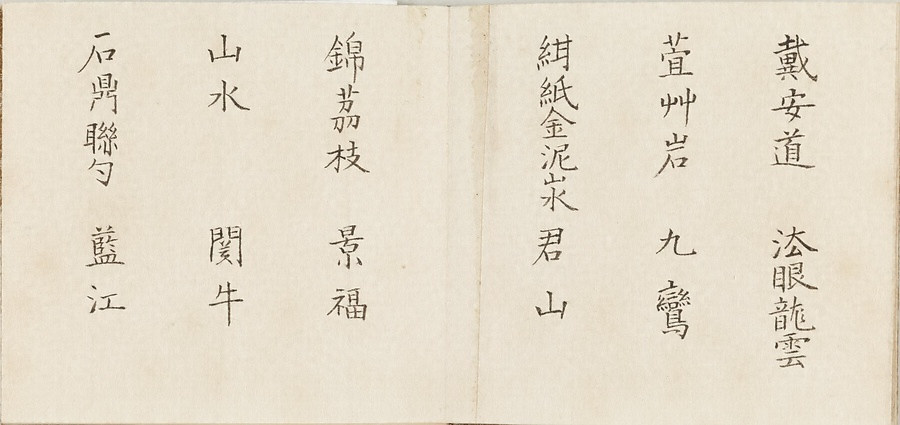 戴安道 法眼龍雲
萱艸岩 九鸞
紺紙金泥山水 君山
錦茘枝 景福
山水 関牛
石鼎聯句 藍江